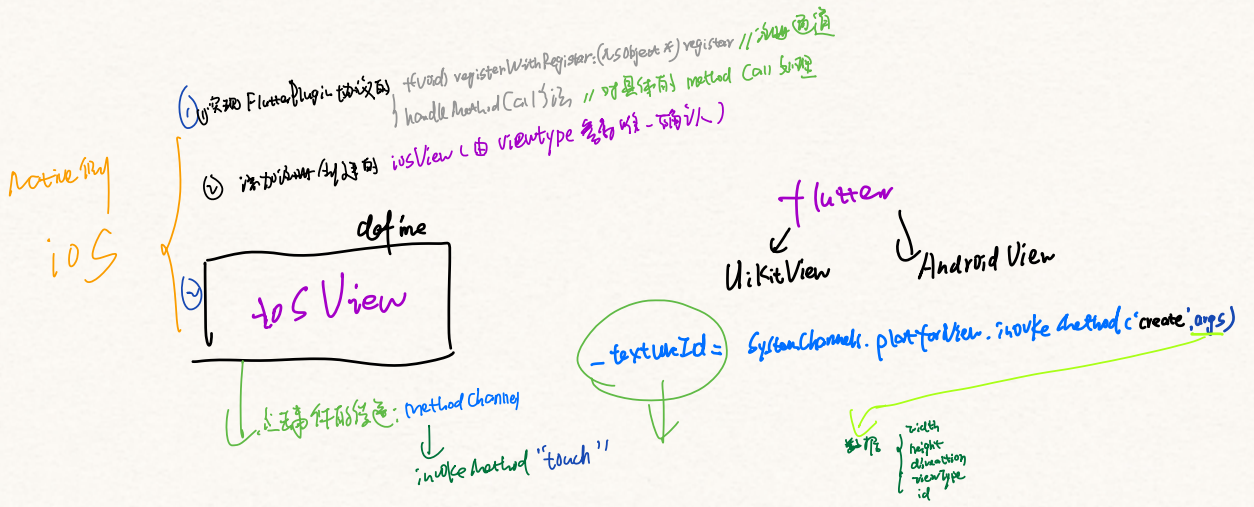 ① 实现FlutterPlugin协议的
+(void) registerWithRegister:(nsobject *) register //注册通道
handleMethodCall方法 //对具体的 method Call 处理
② 添加 的 iosView (由 viewtype 唯一确认)
native
ios
define
② ios View
点击事件的传递: methodChannel
invokeMethod "touch"
flutter
UiKitView
Android View
_textureId = SystemChannels.platformView.invokeMethod('create',args)
数据
width
height
direction
viewType
id